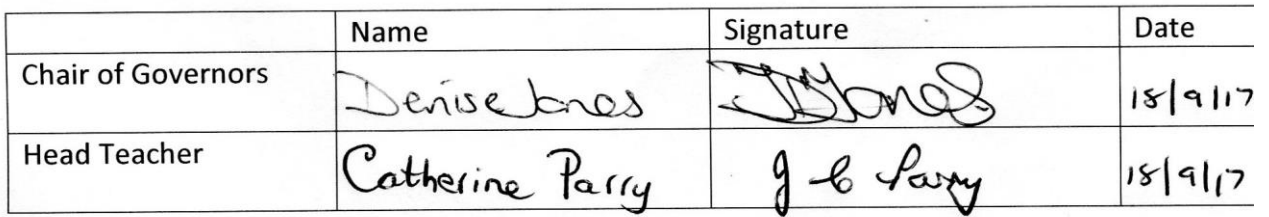 Name Signature Date
Chair of Governors Denise Jones DJones 18/9/17
Head Teacher Catherine Parry J C Parry 18/9/17